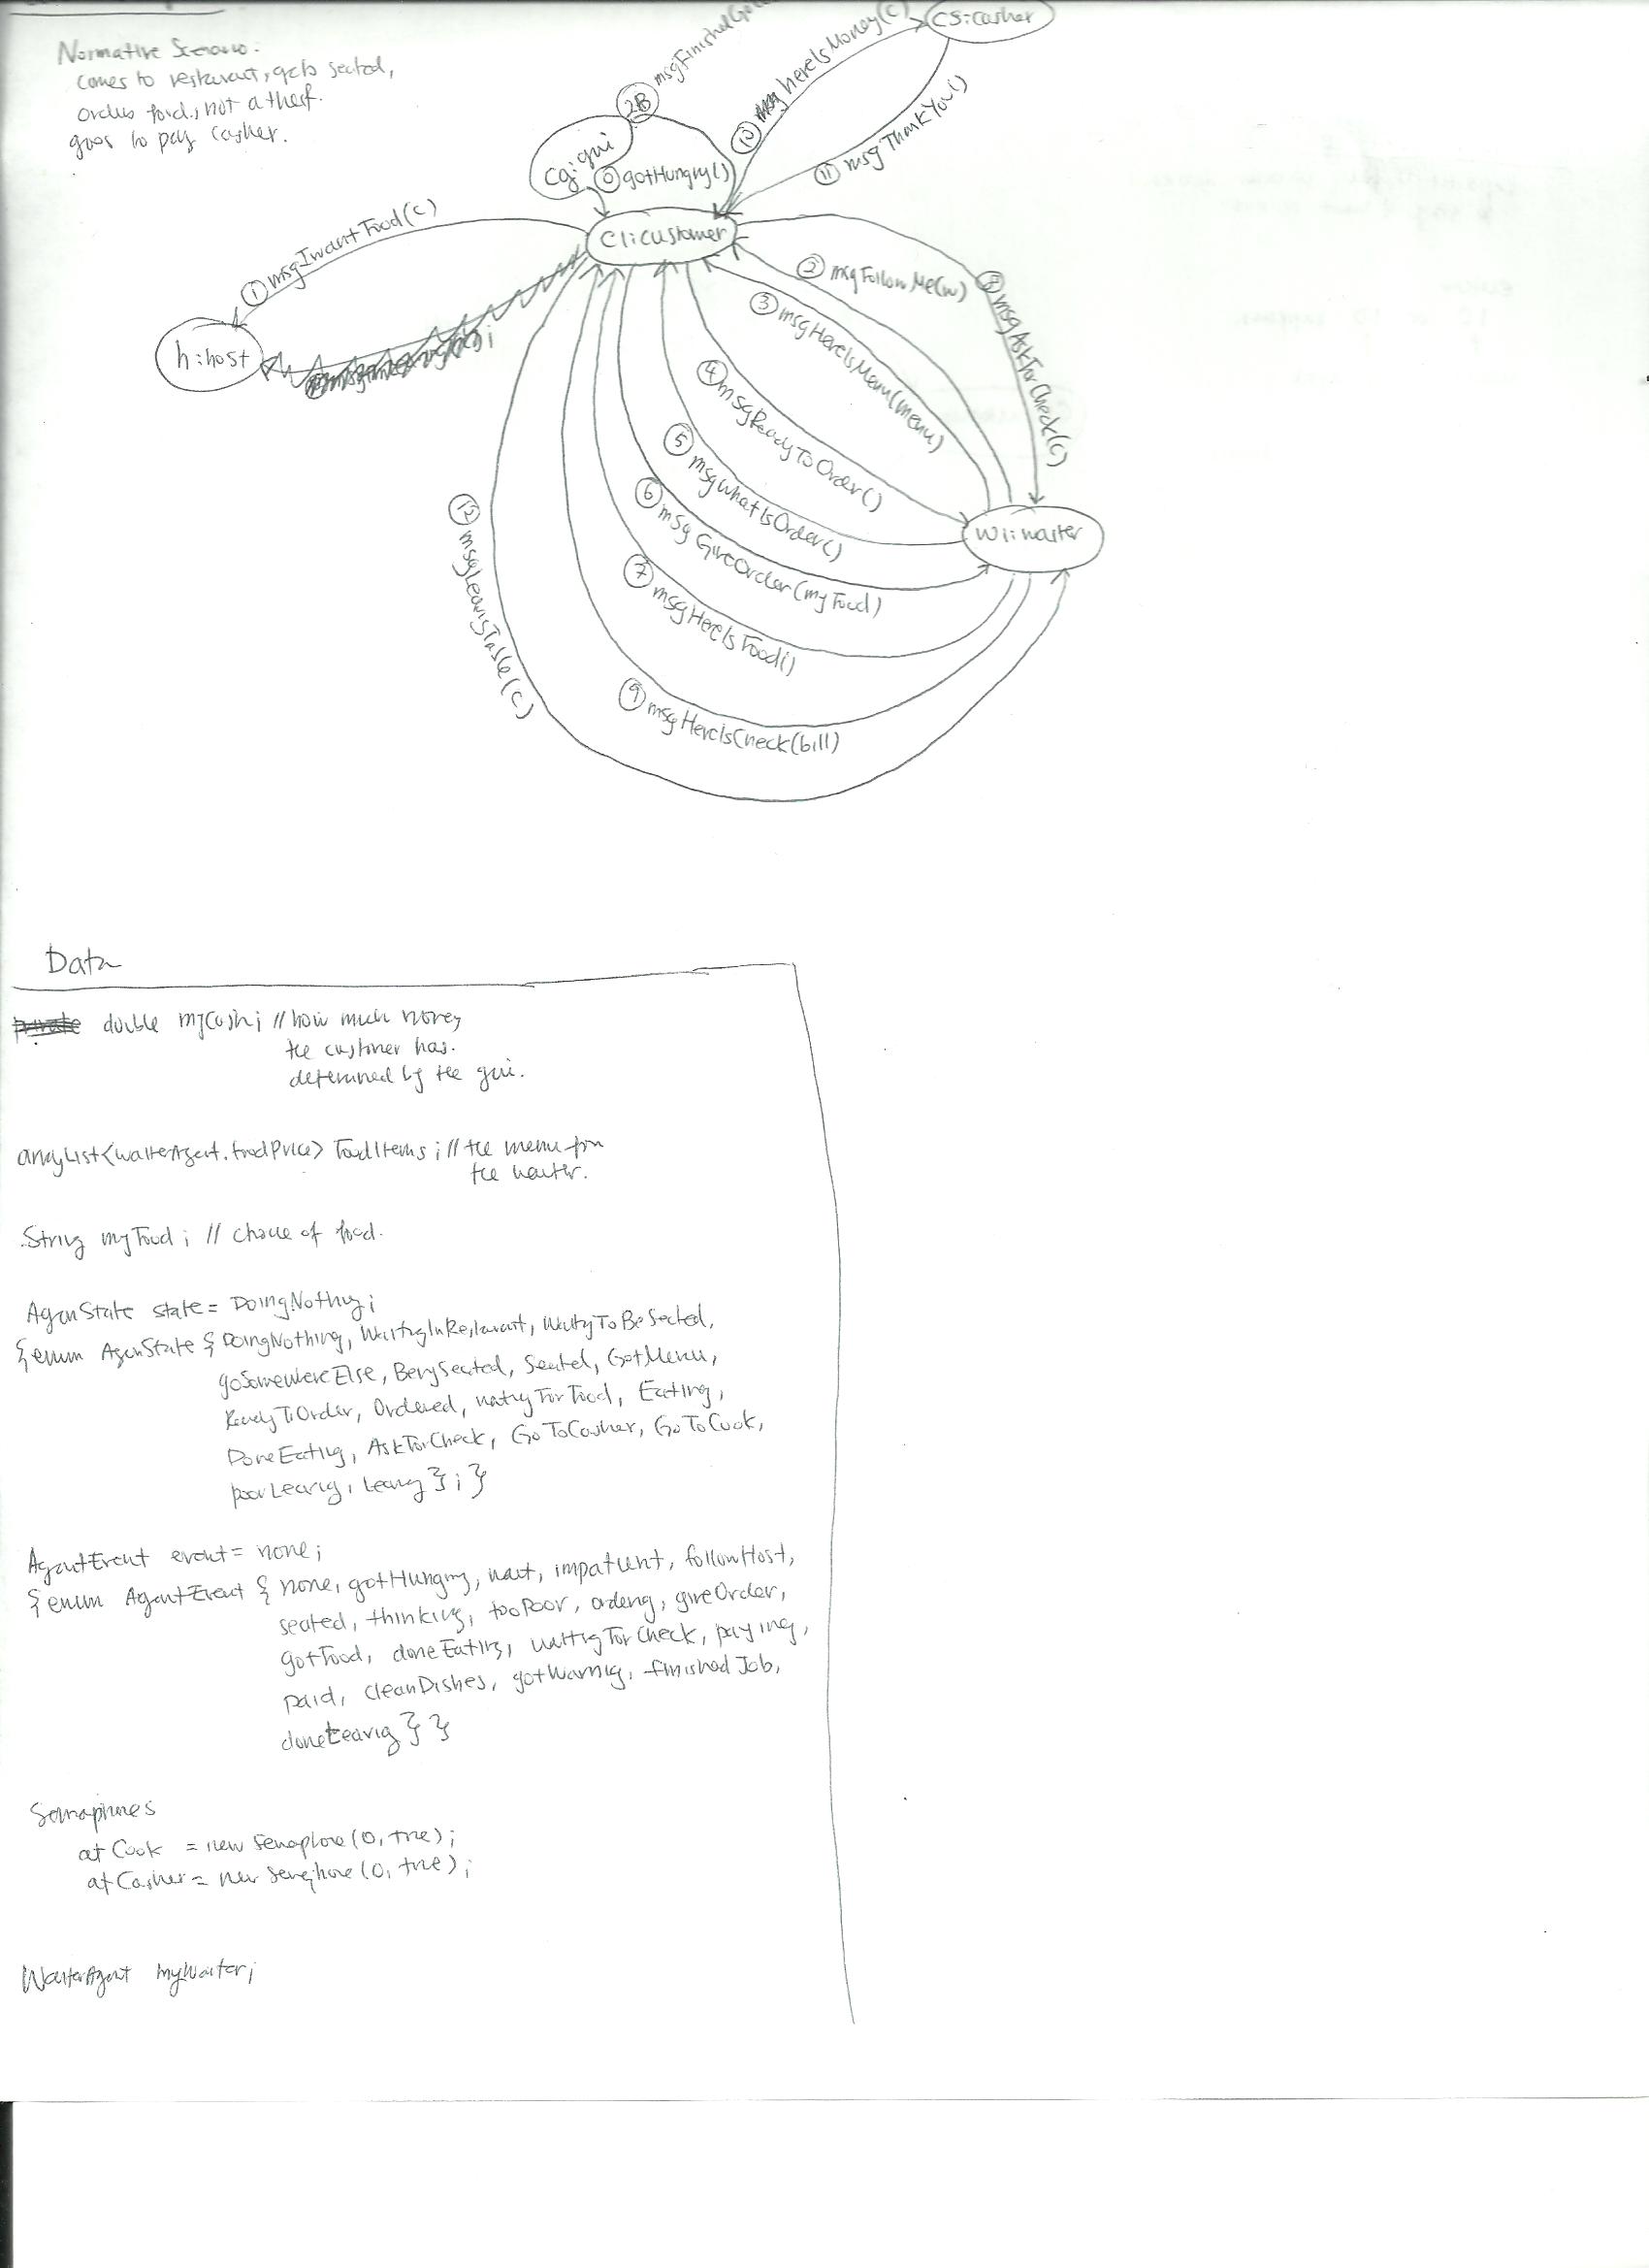 Normative Scenario:
comes to restaurant, gets seated,
orders food, not a theif.
goes to pay casher.
cs:casher
10 msg hereIsMoney(c)
11 msgThankYou()
2B
cg:gui
0 gotHungry()
c1:customer
1 msgIwantFood(c)
h:host
2 msgFollowMe(w)
3 msgHereIsMenu(menu)
8 msgAskForCheck(c)
4 msgReadyToOrder()
5 msgWhatIsOrder()
6 msgGiveOrder(myFood)
7 msgHereIsFood()
9 msgHereIsCheck(bill)
12 msgLeavingTable(c)
w1:waiter
Data
private double myCash; // how much money
the customer has.
determined by the gui.
arrayList<waiterAgent.foodPrice> foodItems; // the menu from
the waiter.
String myFood; // choice of food.
AgentState state = DoingNothing;
{enum AgentState {DoingNothing, WaitingInRestaurant, WaitingToBeSeated,
goSomewhereElse, BeingSeated, Seated, GotMenu,
ReadyToOrder, Ordered, waitingForFood, Eating,
DoneEating, AskForCheck, GoToCasher, GoToCook,
poorLeaving, Leaving};}
AgentEvent event = none;
{enum AgentEvent {none, gotHungry, wait, impatient, followHost,
seated, thinking, tooPoor, ordering, giveOrder,
gotFood, doneEating, waitingForCheck, paying,
paid, cleanDishes, gotWarning, finishedJob,
doneLeaving}}
Semaphores
atCook = new Semaphore(0, true);
atCasher = new Semaphore(0, true);
WaiterAgent myWaiter;